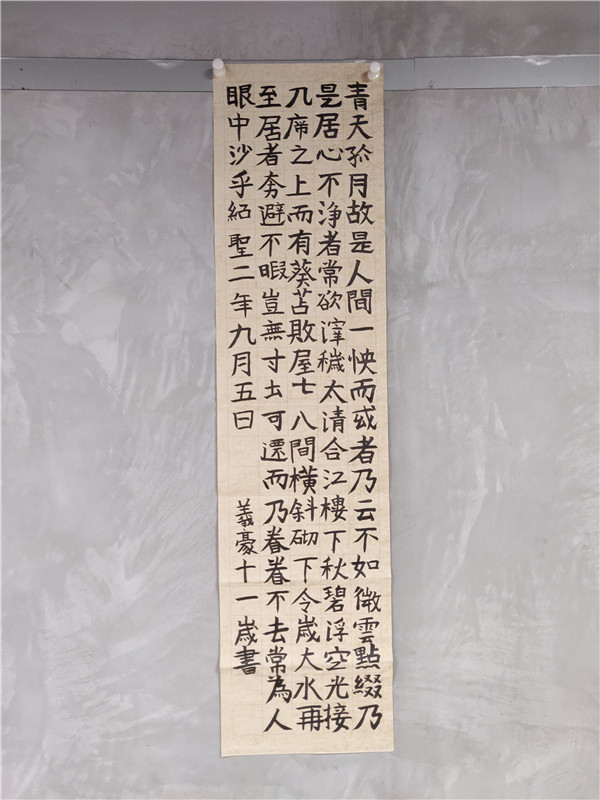 青天孤月故是人間一怏而或者乃云不如微雲點綴乃
是居心不淨者常欲滓穢太清合江樓下秋碧浮空光接
几席之上而有葵苫敗屋七八間橫斜砌下今歲大水再
至居者奔避不暇豈無寸土可還而乃眷眷不去常為人
眼中沙乎紹聖二年九月五日
義豪十一歲書